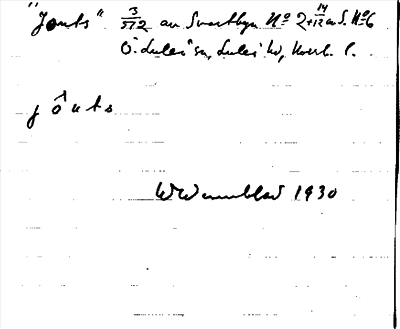 "Jonts" 3/512 av Svartbyn No 2 + 14/12 av S. No 6
Ö. Luleå sn, Luleå hd, Norrb. l.
j ô n t s
W Wennblad 1930